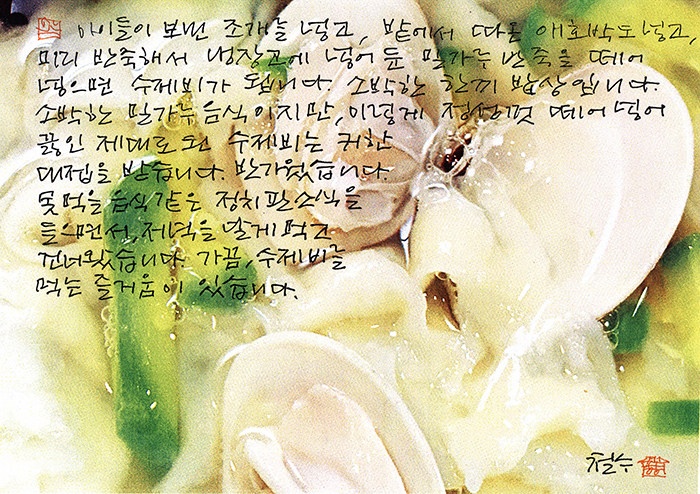 아이들이 보낸 조개를 넣고, 밭에서 따온 애호박도 넣고,
미리 반죽해서 냉장고에 넣어 둔 밀가루 반죽을 떼어
넣으면 수제비가 됩니다. 소박한 한끼 밥상입니다.
소박한 밀가루 음식이지만, 이렇게 정성껏 떼어 넣어
끓인 제대로 된 수제비는 귀한
대접을 받습니다. 반가웠습니다.
못 먹을 음식 같은 정치판 소식을
들으면서, 저녁을 달게 먹고
건너왔습니다. 가끔, 수제비를
먹는 즐거움이 있습니다.
철수